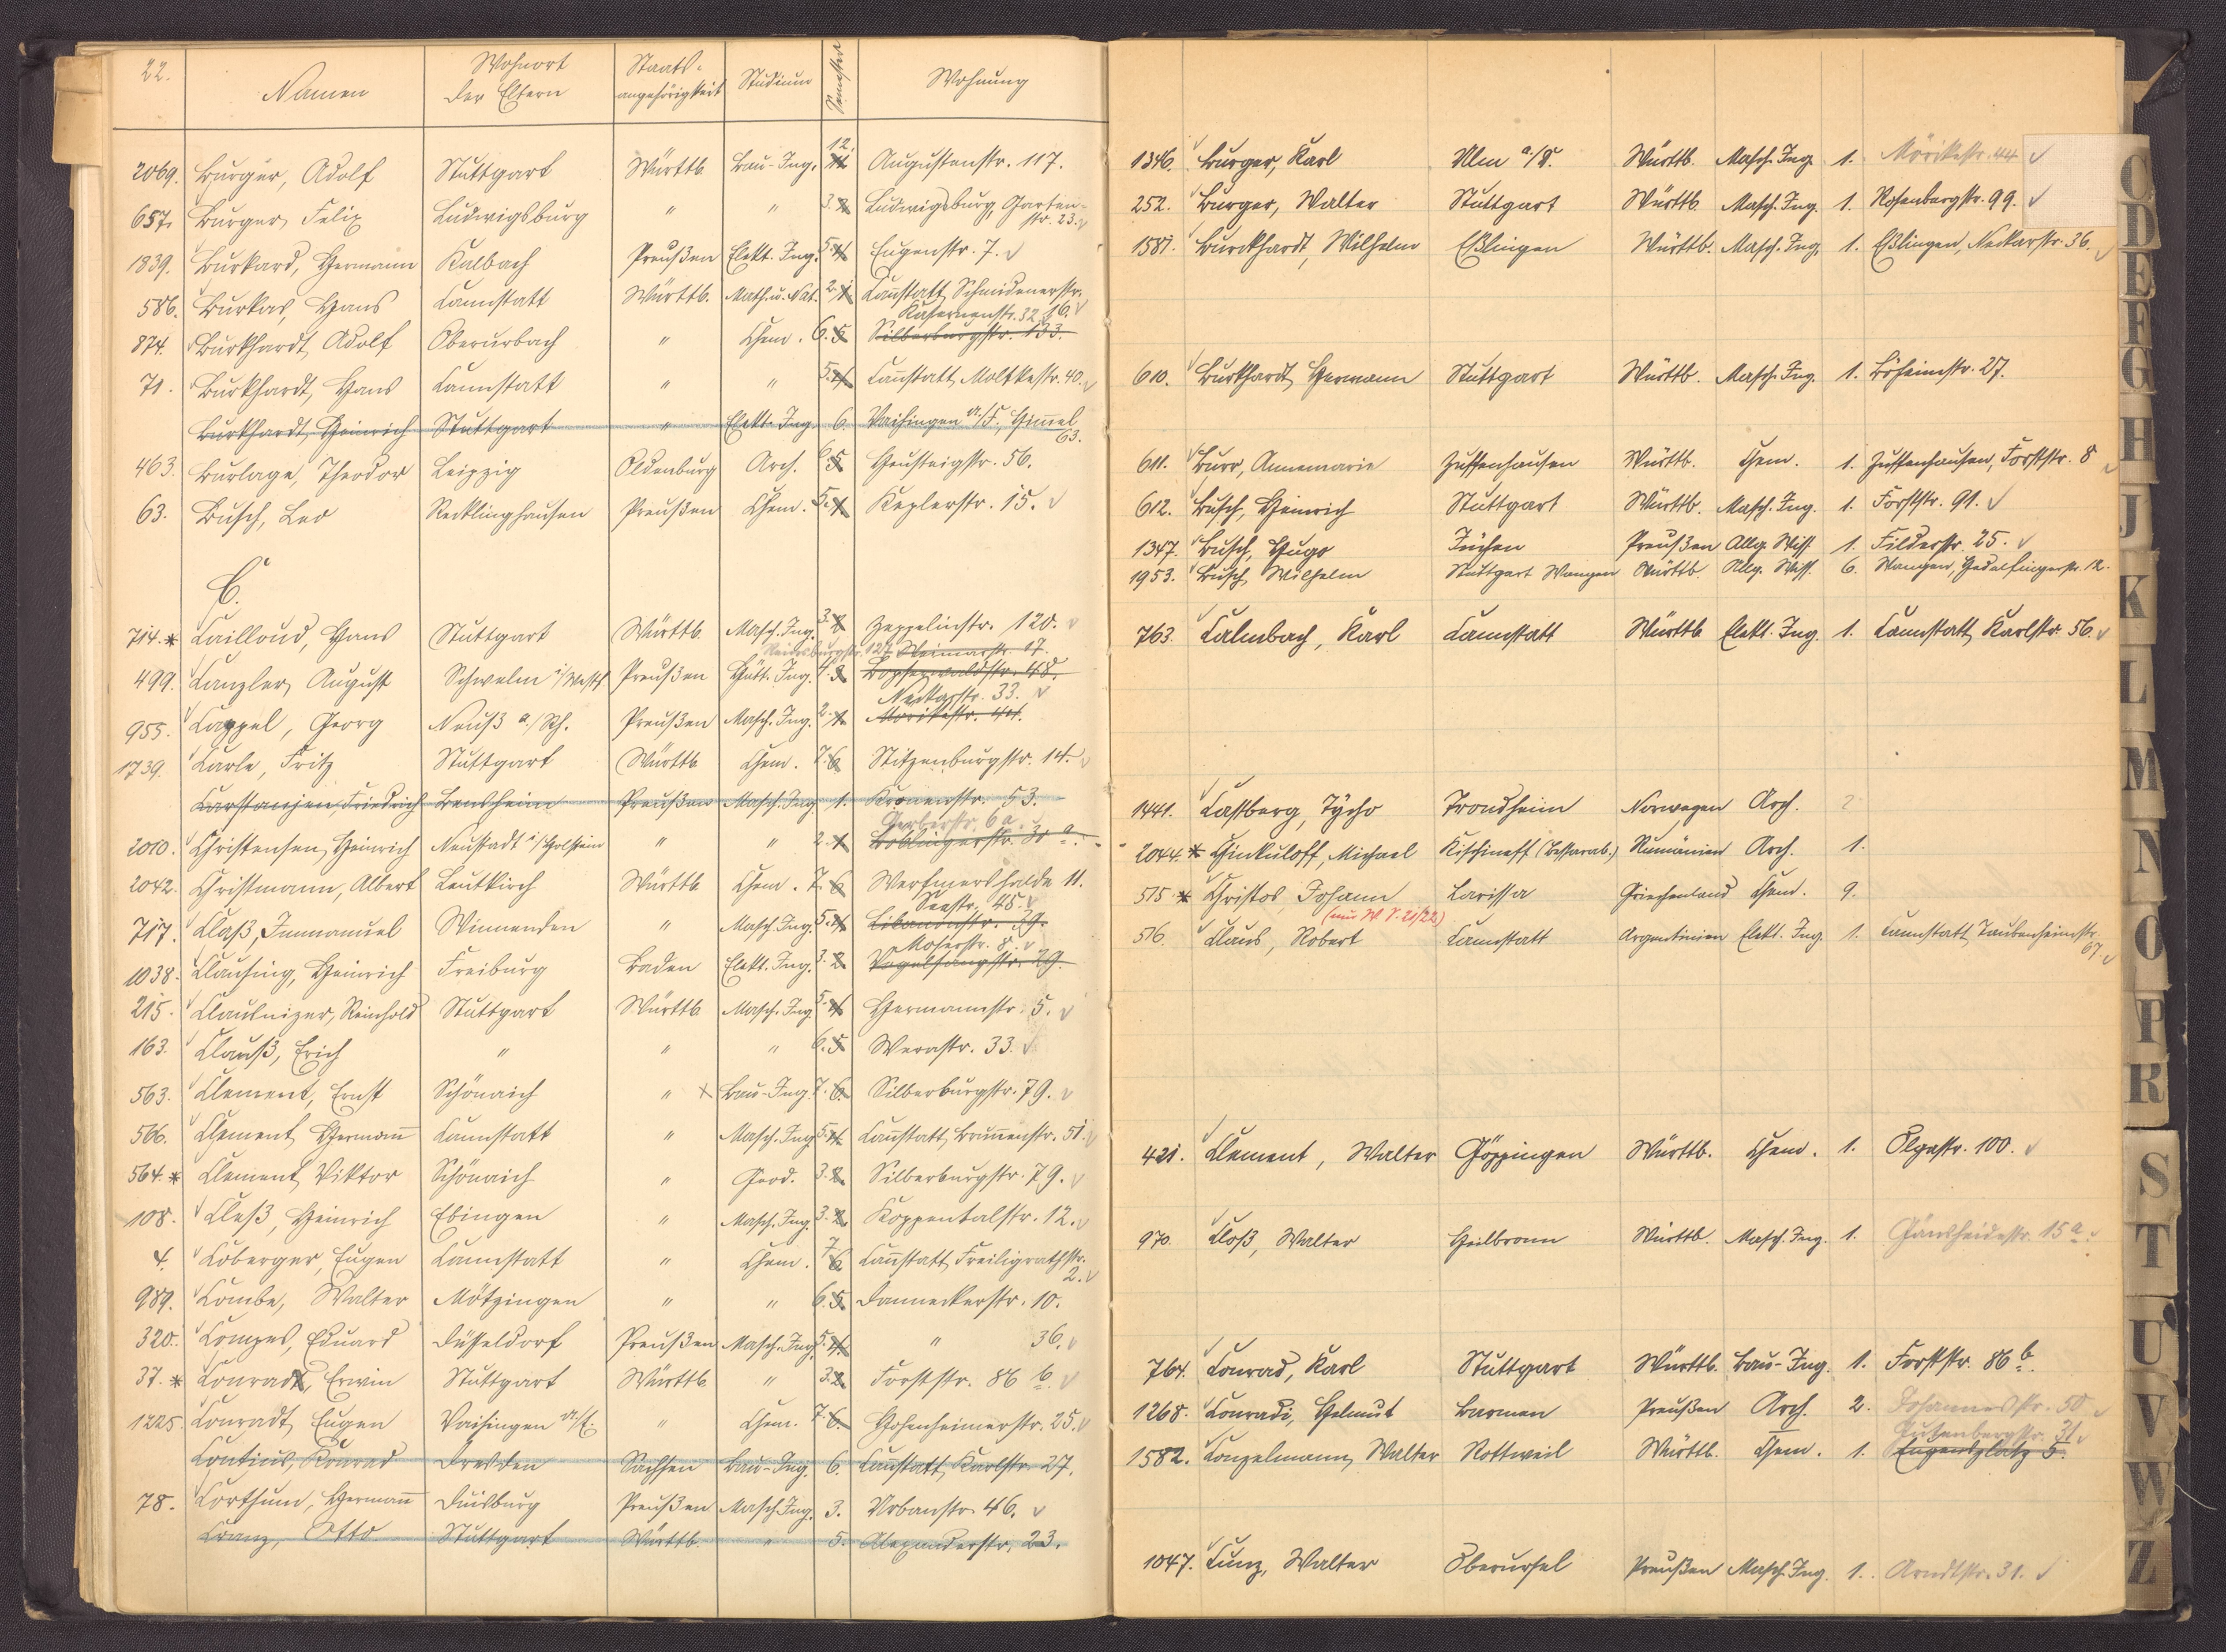 22.
Namen
Wohnort der Eltern
Staats-angehörigkeit
Studium
Semester
Wohnung
2069. Burger, Adolf Stuttgart Württb. Bau-Ing. 12. 11. Augustenstr. 117.
657. Burger, Felix Ludwigsburg " " 3. 2. Ludwigsburg, Garten-
str. 23.
1839. Burkard, Hermann Kalbach Preußen Elekt. Ing. 5. 4. Eugenstr. 7.
586. Burkas, Hans Cannstatt Württb. Math. u. Nat. 2. 1. Cannstatt, Schmidenerstr.
Kasernenstr. 32. 16.
874. Burkhardt, Adolf Oberurbach " Chem. 6. 5. Silberburgstr. 133.
71. Burkhardt, Hans Cannstatt " " 5. 4. Cannstatt, Moltkestr. 40.
Burkhardt, Heinrich Stuttgart " Elekt. Ing. 6. Vaihingen a./F., Himmel
63.
463. Burlage, Theodor Leipzig Oldenburg Arch. 6. 5. Heusteigstr. 56.
63. Busch, Leo Recklinghausen Preußen Chem. 5. 4. Keplerstr. 15.
C.
714. * Cailloud, Hans Stuttgart Württb. Masch. Ing. 3. 2. Zeppelinstr. 120.
127. Weimarstr. 17.
499. Canzler, August Schwelm i/Westf. Preußen Hütt. Ing. 4. 3. Bopserwaldstr. 48.
Neckarstr. 33.
955. Cappel, Georg Neuß a./Rh. Preußen Masch. Ing. 2. 1. Mörikestr. 44.
1739. Carle, Fritz Stuttgart Württb. Chem. 7. 6. Stitzenburgstr. 14.
Carstanjen, Friedrich Bensheim Preußen Masch. Ing. 1. Kronenstr. 53.
Gerberstr. 6a.
2010. Christensen, Heinrich Neustadt i/Holstein " " 2. 1. Böblingerstr. 30 a.
2042. Christmann, Albert Leutkirch Württb. Chem. 7. 6. Werfmershalde 11.
Seestr. 45.
717. Claß, Immanuel Winnenden " Masch. Ing. 5. 4. Libanonstr. 39.
Moserstr. 8.
1038. Clausing, Heinrich Freiburg Baden Elekt. Ing. 3. 2. Vogelsangstr. 29.
215. Clausnizer, Reinhold Stuttgart Württb. Masch. Ing. 5. 4. Hermannstr. 5.
163. Clauß, Erich " " " 6. 5. Werastr. 33.
563. Clement, Ernst Schönaich " x Bau-Ing. 7. 6. Silberburgstr. 79.
566. Clement, Hermann Cannstatt " Masch. Ing. 5. 4. Cannstatt, Brunnenstr. 51.
564. * Clement, Viktor Schönaich " Geod. 3. 2. Silberburgstr. 79.
108. Cleß, Heinrich Ebingen " Masch. Ing. 3. 2. Koppentalstr. 12.
4. Coberger, Eugen Cannstatt " Chem. 7. 6. Cannstatt, Freiligrathstr.
2.
989. Combe, Walter Mötzingen " " 6. 5. Danneckerstr. 10.
320. Compes, Eduard Düsseldorf Preußen Masch. Ing. 5. 4. " 36.
37. * Conradt, Erwin Stuttgart Württb. " 3. 2. Forststr. 86 b.
1225. Conradt, Eugen Vaihingen a/E. " Chem. 7. 6. Hohenheimerstr. 25.
Contius, Konrad Dresden Sachsen Bau-Ing. 6. Cannstatt, Karlstr. 27.
78. Corthum, Hermann Duisburg Preußen Masch. Ing. 3. Urbanstr. 46.
Cranz, Otto Stuttgart Württb. " 5. Alexanderstr. 23.
1346. Burger, Karl Ulm a/D. Württb. Masch. Ing. 1. Mörikestr. 44
252. Burger, Walter Stuttgart Württb. Masch. Ing. 1. Rosenbergstr. 99.
1581. Burckhardt, Wilhelm Eßlingen Württb. Masch. Ing. 1. Eßlingen, Neckarstr. 36.
610. Burkhardt, Hermann Stuttgart Württb. Masch. Ing. 1. Böheimstr. 27.
611. Burr, Annemarie Zuffenhausen Württb. Chem. 1. Zuffenhausen, Forststr. 8
612. Busch, Heinrich Stuttgart Württb. Masch. Ing. 1. Forststr. 91.
1347. Busch, Hugo Jüchen Preußen Allg. Wiss. 1. Filderstr. 25.
1953. Busch, Wilhelm Stuttgart Wangen Württb. Allg. Wiss. 6. Wangen, Hedelfingerstr. 12.
763. Calmbach, Karl Cannstatt Württb. Elekt. Ing. 1. Cannstatt, Karlstr. 56.
1441. Castberg, Tycho Trondheim Norwegen Arch. 2
2044. * Chinkuloff, Michael Kischineff (Bessarab.) Rumänien Arch. 1.
515. * Christos, Johann Larissa Griechenland Chem. 9.
(nur W. S. 21/22)
516. Claus, Robert Cannstatt Argentinien Elekt. Ing. 1. Cannstatt, Taubenheimstr.
67.
421. Clement, Walter Göppingen Württb. Chem. 1. Olgastr. 100.
970. Cloß, Walter Heilbronn Württb. Masch. Ing. 1. Gänsheidestr. 15 a.
764. Conrad, Karl Stuttgart Württb. Bau-Ing. 1. Forststr. 86 b.
1268. Conradi, Helmut Barmen Preußen Arch. 2. Johannesstr. 50
Gutenbergstr. 31.
1582. Conzelmann, Walter Rottweil Württb. Chem. 1. Eugensplatz 5.
1047. Cunz, Walter Oberursel Preußen Masch. Ing. 1. Arndtstr. 31.
C
D
E
F
G
H
J
K
L
M
N
O
P
R
S
T
U
V
W
Z